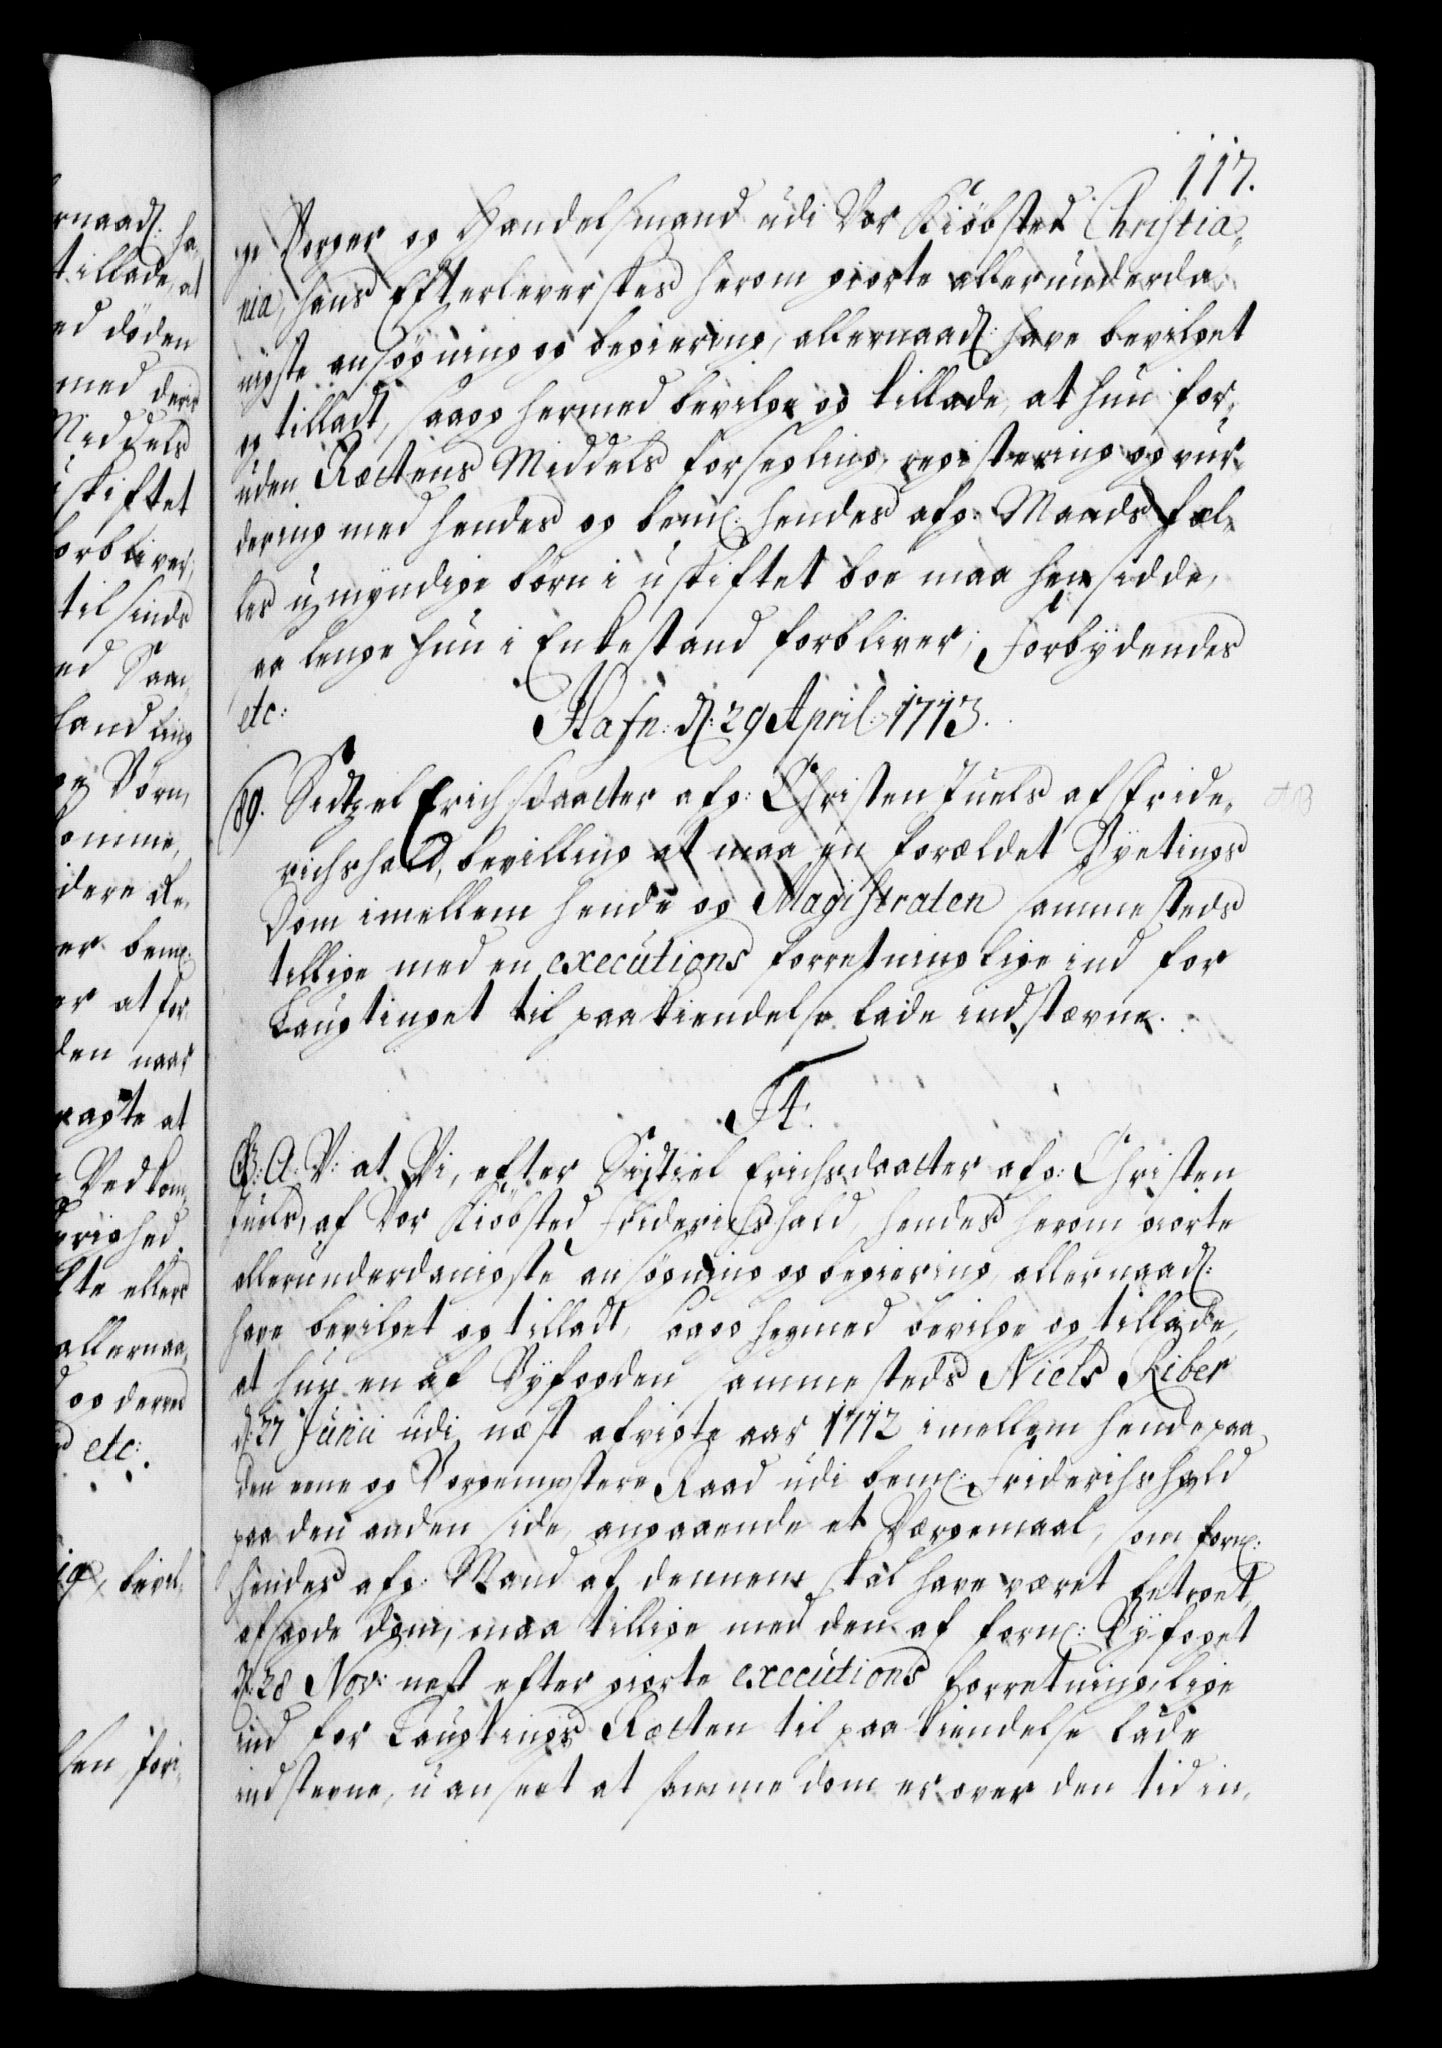 117.
ge Borger og Handelsmand udi Vor Kiöbsted Christia-
nia, hans Efterleverskes herom giorte allerunderda-
nigste ansögning og begiering, allernaad: have bevilget
og tilladt, saa og hermed bevilge og tillade, at hun for-
uden Rættens Middels forsegling, registering og vur-
dering med hendes og bem: hendes afg: Mands fæl-
les umyndige börn i uskiftet boe maa hensidde,
saa lenge hun i Enkestand forbliver; Forbydendes
etc: Hafn: d: 29 April: 1713.
89. Sidtzel Erichsdaatter afg: Christen Juels af Fride-
richshald, bevilling at maa en forældet Byetings
Dom imellem hende og Magistraten sammesteds
tillige med en executions forretning lige ind for
Laugtinget til paakiendelse lade indstævne.
F4.
G: A: V: at Vi, efter Sidtzel Erichsdaatter afg: Christen
Juels, af Vor Kiöbsted Friderichshald, hendes herom giorte
allerunderdanigste ansögning og begiering, allernaad:
have bevilget og tilladt, saa og hermed bevilge og tillade,
at hun en af Byfogden sammesteds Niels Riber
d: 27 Junii udi næst afvigte aar 1712 imellem hende paa
den eene og Borgemestere Raad udi bem: Friderichshald
paa den anden side, angaaende et Værgemaal, som forn:
hendes afg: Mand af dennem skal have været betroet,
afsagde dom, maa tillige med den af forn: Byfoget
d: 28 Nov: nest efter giorte executions forretning, lige
ind for Laugtings Rætten til paakiendelse lade
indstevne, uanseet at samme dom er over den tid in-